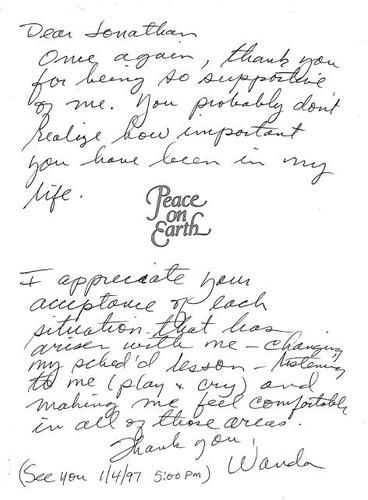 Dear Jonathan
Once again, thank you
for being so supportive
of me. You probably don't
realize how important
you have been in my
life.
Peace
on
Earth
I appreciate your
acceptance of each
situation that has
arisen with me – changing
my sched'd lesson – listening
to me (play + cry) and
making me feel comfortable
in all of those areas.
Thank you,
(See you 1/4/97 5:00 PM) Wanda